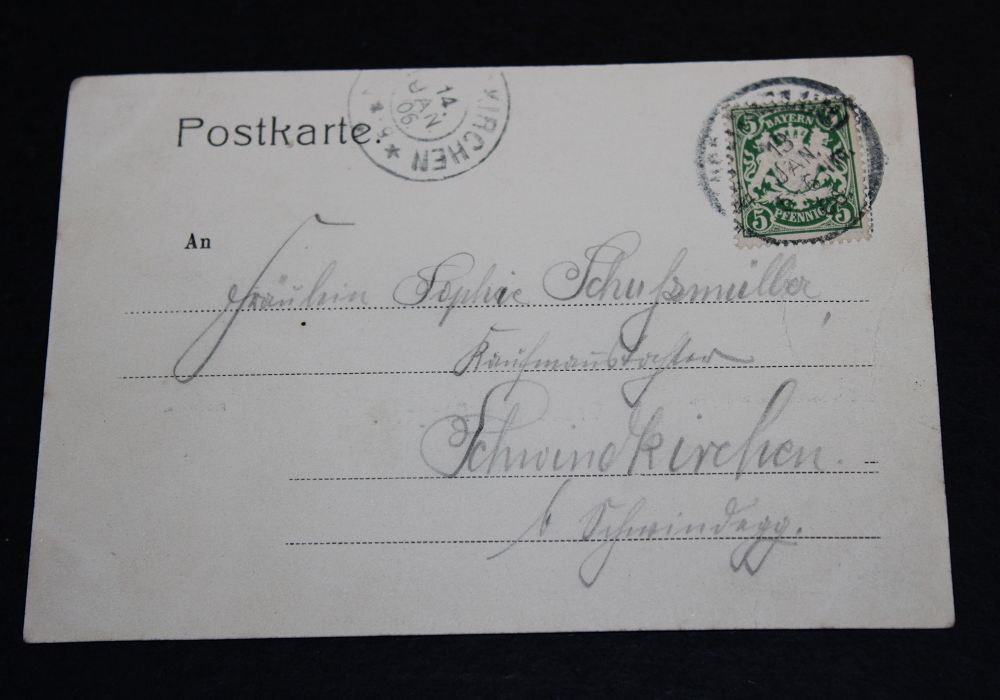 Postkarte.
KIRCHEN
14
JAN
06
5
BAYERN
13
JAN
PFENNIG
5 5
An
Fräulein Sophie Schußmüller
Kaufmannstochter
Schwindkirchen.
b Schwindegg.